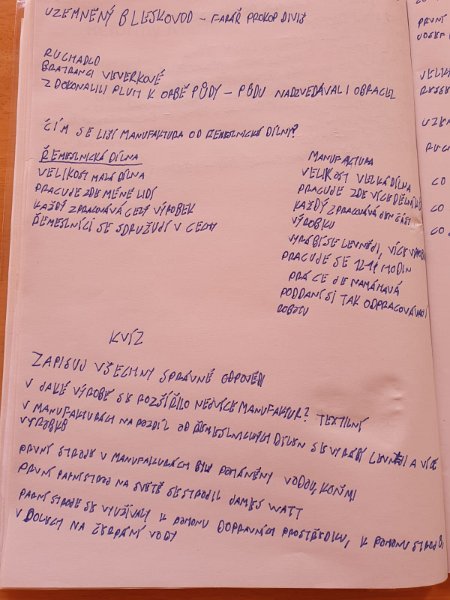 UZEMNĚNÝ BLESKOVOD - FARÁŘ PROKOP DIVIŠ
RUCHADLO
BRATRANCI VEVERKOVÉ
ZDOKONALILI PLUH K ORBĚ PŮDY - PŮDU NADZVEDÁVAL I OBRACEL
ČÍM SE LIŠÍ MANUFAKTURA OD ŘEMESLNICKÁ DÍLNY?
ŘEMESLNICKÁ DÍLNA
VELIKOST MALÁ DÍLNA
PRACUJE ZDE MÉNĚ LIDÍ
KAŽDÝ ZPRACOVÁVÁ CELÝ VÝROBEK
ŘEMESLNÍCI SE SDRUŽUJÍ V CECHY
MANUFAKTURA
VELIKOST VELKÁ DÍLNA
PRACUJE ZDE VÍCE DĚLNÍKŮ
KAŽDÝ ZPRACOVÁVÁ JEN ČÁST
VÝROBKU
VYRÁBÍ SE LEVNĚJI, VÍCE
PRACUJE SE 12-14 HODIN
PRÁCE JE NAMÁHAVÁ
PODDANÍ SI TAK ODPRACOVÁVAJÍ
ROBOTU
KVÍZ
ZAPISUJ VŠECHNY SPRÁVNÉ ODPOVĚDI
V JAKÉ VÝROBĚ SE ROZŠÍŘILO NEJVÍCE MANUFAKTUR? TEXTILNÍ
V MANUFAKTURÁCH NA ROZDÍL OD ŘEMESLNICKÝCH DÍLEN SE VYRÁBÍ LEVNĚJI A VÍCE
VÝROBKŮ
PRVNÍ STROJE V MANUFAKTURÁCH BYLY POHÁNĚNY VODOU, KOŇMI
PRVNÍ PARNÍ STROJ NA SVĚTĚ SESTROJIL JAMES WATT
PARNÍ STROJE SE VYUŽÍVALY K POHONU DOPRAVNÍCH PROSTŘEDKU, K POHONU STROJŮ,
V DOLECH NA ČERPÁNÍ VODY